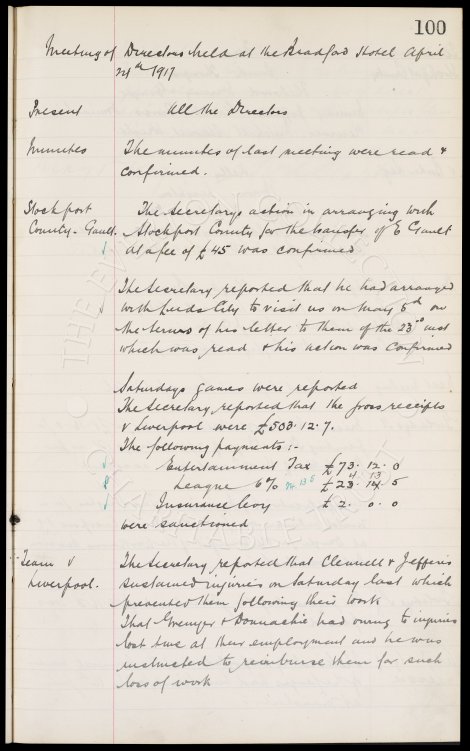 100
Meeting of Directors held at the Bradford Hotel April
24th 1917
Present All the Directors
Minutes The minutes of last meeting were read &
confirmed.
Stockport The Secretarys action in arranging with
County - Gault. Stockport County for the transfer of E Gault
at a fee of £45 was confirmed
The Secretary reported that he had arranged
with Leeds City to visit us on May 5th on
the terms of his letter to them of the 23rd inst
which was read & his action was confirmed
Saturdays games were reported
The Secretary reported that the gross receipts
v Liverpool were £503. 12. 7.
The following payments :-
Entertainment Tax £73. 12. 0
4 13
League 6% 24. 13 5 £23. 14. 5
Insurance levy £2. 0. 0
were sanctioned
Team v The Secretary reported that Clennell & Jefferis
Liverpool. sustained injuries on Saturday last which
prevented them following their work
That Grenyer & Donnachie had owing to injuries
lost time at their employment and he was
instructed to reimburse them for such
loss of work